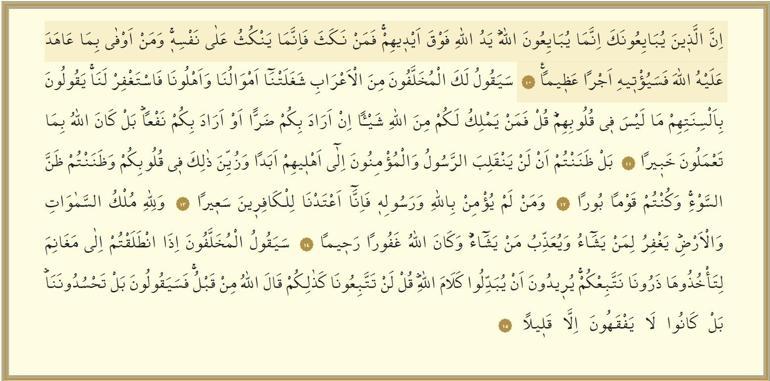 اِنَّ الَّذ۪ينَ يُبَايِعُونَكَ اِنَّمَا يُبَايِعُونَ اللّٰهَۜ يَدُ اللّٰهِ فَوْقَ اَيْد۪يهِمْۚ فَمَنْ نَكَثَ فَاِنَّمَا يَنْكُثُ عَلٰى نَفْسِه۪ۚ وَمَنْ اَوْفٰى بِمَا عَاهَدَ
عَلَيْهُ اللّٰهَ فَسَيُؤْت۪يهِ اَجْرًا عَظ۪يمًاۚ ﴿١٠﴾ سَيَقُولُ لَكَ الْمُخَلَّفُونَ مِنَ الْاَعْرَابِ شَغَلَتْنَٓا اَمْوَالُنَا وَاَهْلُونَا فَاسْتَغْفِرْ لَنَاۚ يَقُولُونَ
بِاَلْسِنَتِهِمْ مَا لَيْسَ ف۪ي قُلُوبِهِمْۜ قُلْ فَمَنْ يَمْلِكُ لَكُمْ مِنَ اللّٰهِ شَيْـًٔا اِنْ اَرَادَ بِكُمْ ضَرًّا اَوْ اَرَادَ بِكُمْ نَفْعًاۜ بَلْ كَانَ اللّٰهُ بِمَا
تَعْمَلُونَ خَب۪يرًا ﴿١١﴾ بَلْ ظَنَنْتُمْ اَنْ لَنْ يَنْقَلِبَ الرَّسُولُ وَالْمُؤْمِنُونَ اِلٰٓى اَهْل۪يهِمْ اَبَدًا وَزُيِّنَ ذٰلِكَ ف۪ي قُلُوبِكُمْ وَظَنَنْتُمْ ظَنَّ
السَّوْءِۚ وَكُنْتُمْ قَوْمًا بُورًا ﴿١٢﴾ وَمَنْ لَمْ يُؤْمِنْ بِاللّٰهِ وَرَسُولِه۪ فَاِنَّٓا اَعْتَدْنَا لِلْكَافِر۪ينَ سَع۪يرًا ﴿١٣﴾ وَلِلّٰهِ مُلْكُ السَّمٰوَاتِ
وَالْاَرْضِۜ يَغْفِرُ لِمَنْ يَشَٓاءُ وَيُعَذِّبُ مَنْ يَشَٓاءُۜ وَكَانَ اللّٰهُ غَفُورًا رَح۪يمًا ﴿١٤﴾ سَيَقُولُ الْمُخَلَّفُونَ اِذَا انْطَلَقْتُمْ اِلٰى مَغَانِمَ
لِتَأْخُذُوهَا ذَرُونَا نَتَّبِعْكُمْۚ يُر۪يدُونَ اَنْ يُبَدِّلُوا كَلَامَ اللّٰهِۜ قُلْ لَنْ تَتَّبِعُونَا كَذٰلِكُمْ قَالَ اللّٰهُ مِنْ قَبْلُۚ فَسَيَقُولُونَ بَلْ تَحْسُدُونَنَاۜ
بَلْ كَانُوا لَا يَفْقَهُونَ اِلَّا قَل۪يلًا ﴿١٥﴾